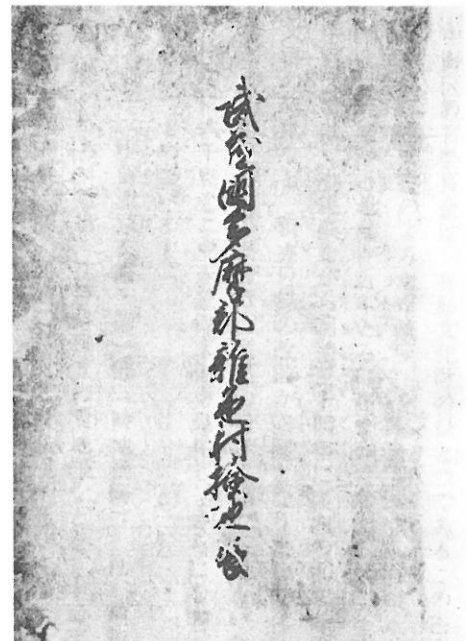 武蔵國多摩郡雑色村検地帳